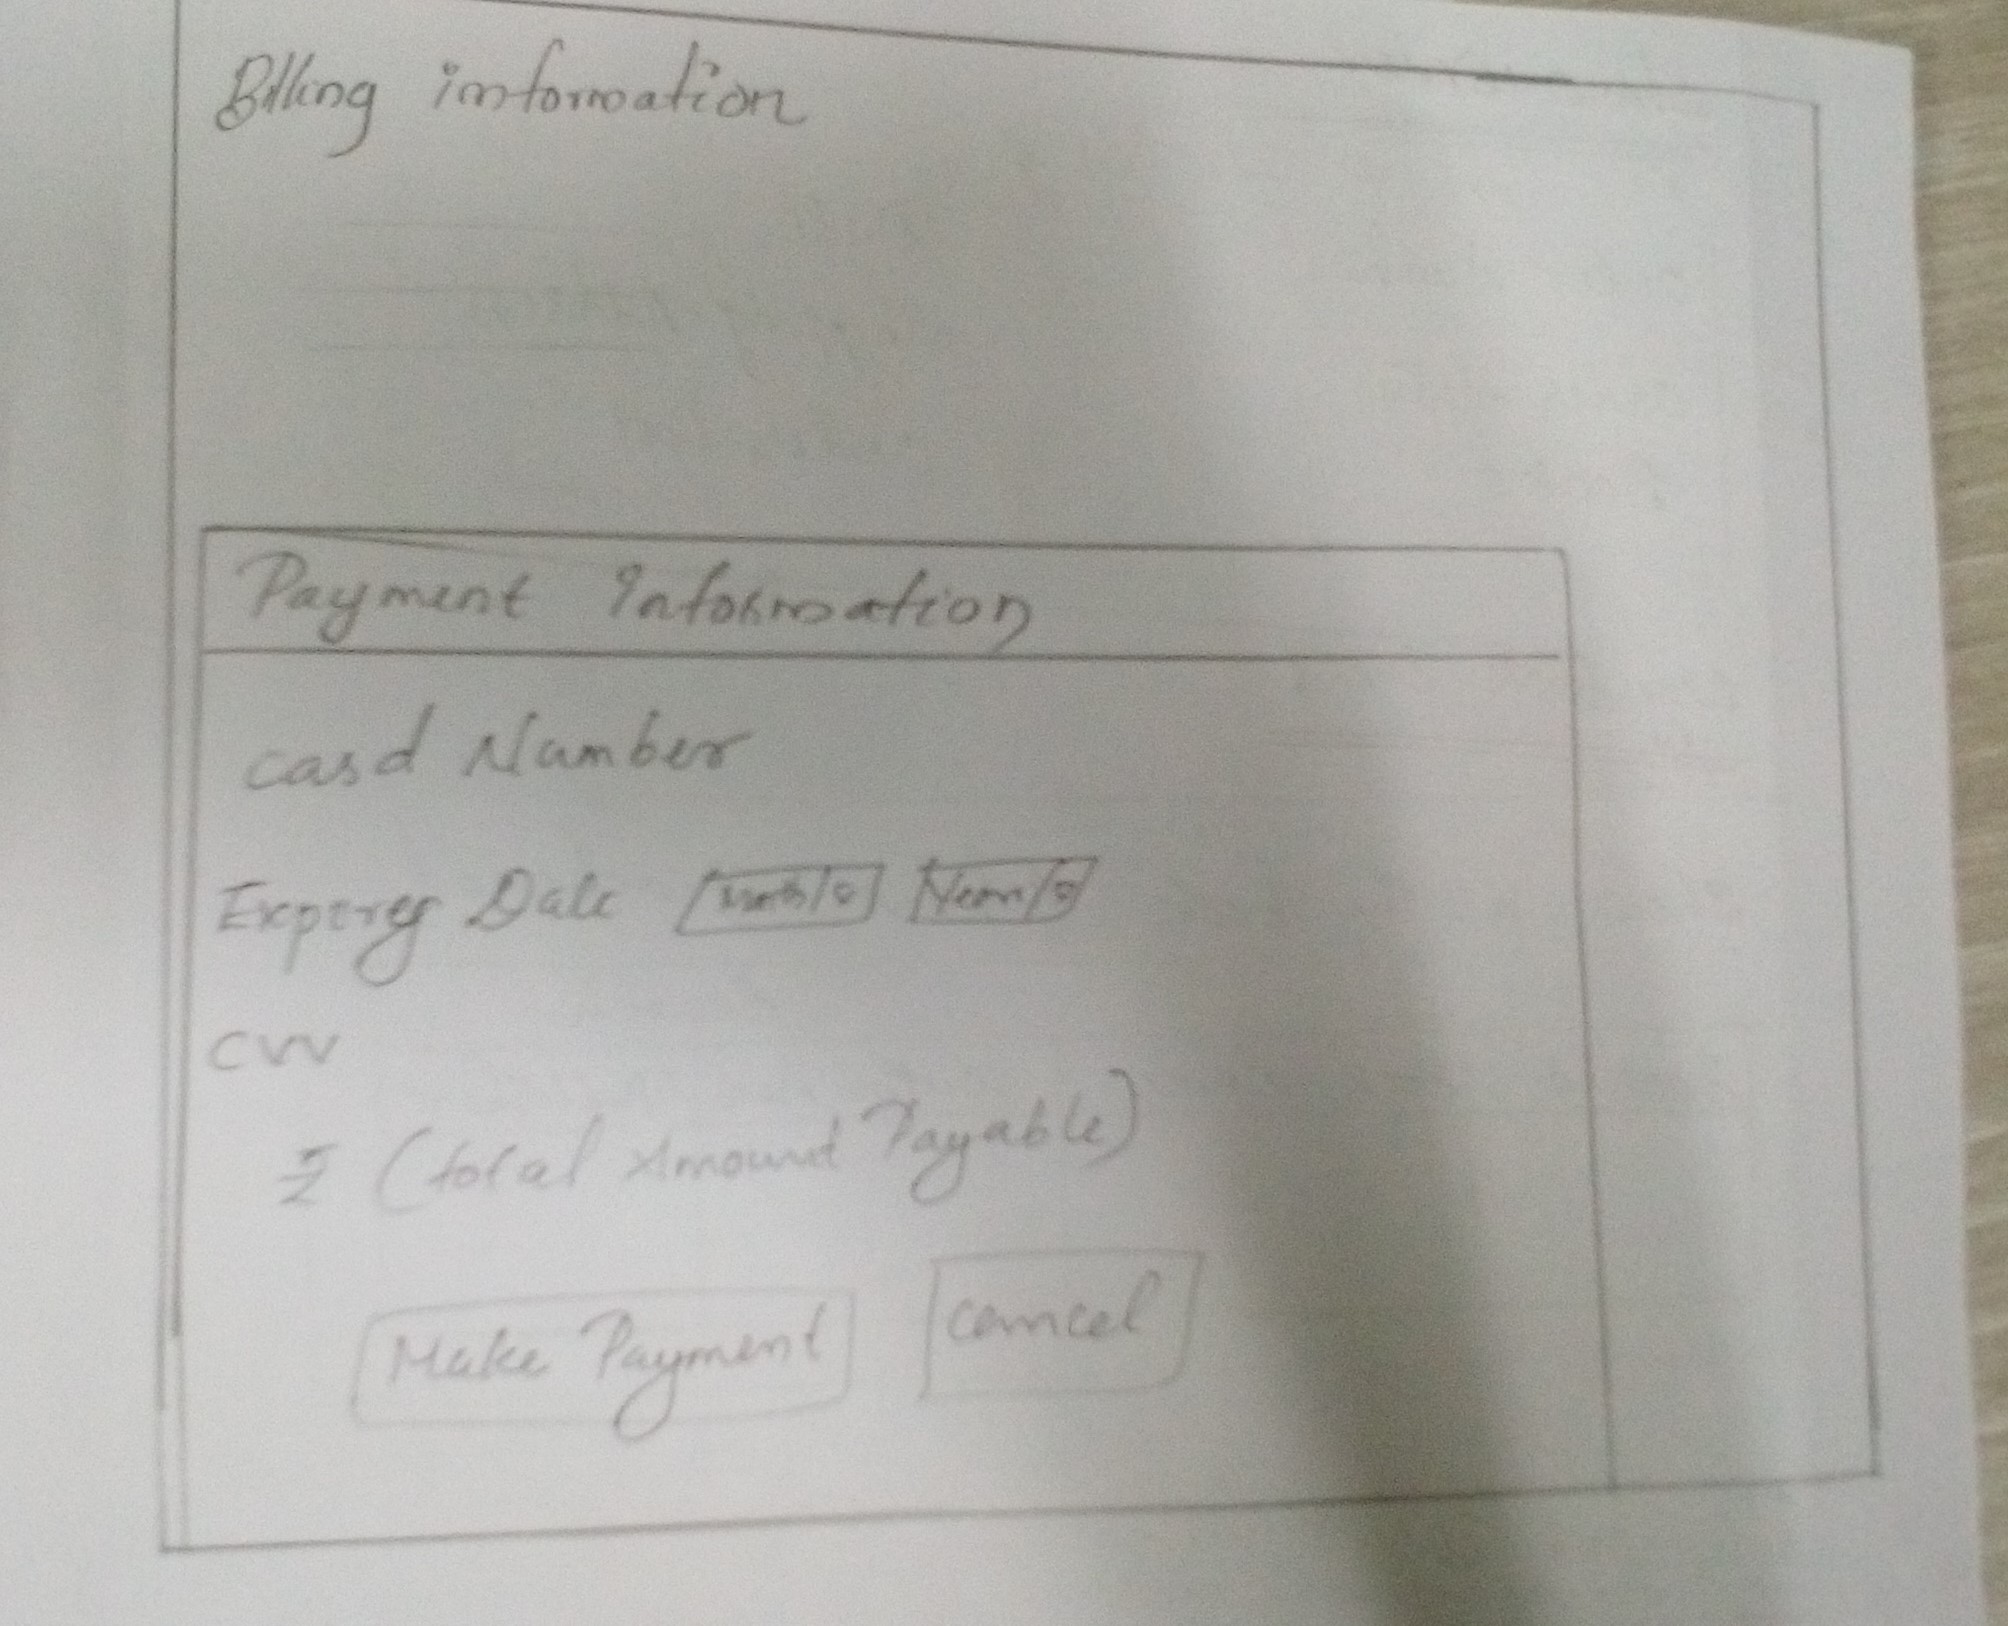 Billing information
Payment Information
card Number
Expirey Date Month Year
CVV
₹ (total Amount Payable)
Make Payment cancel